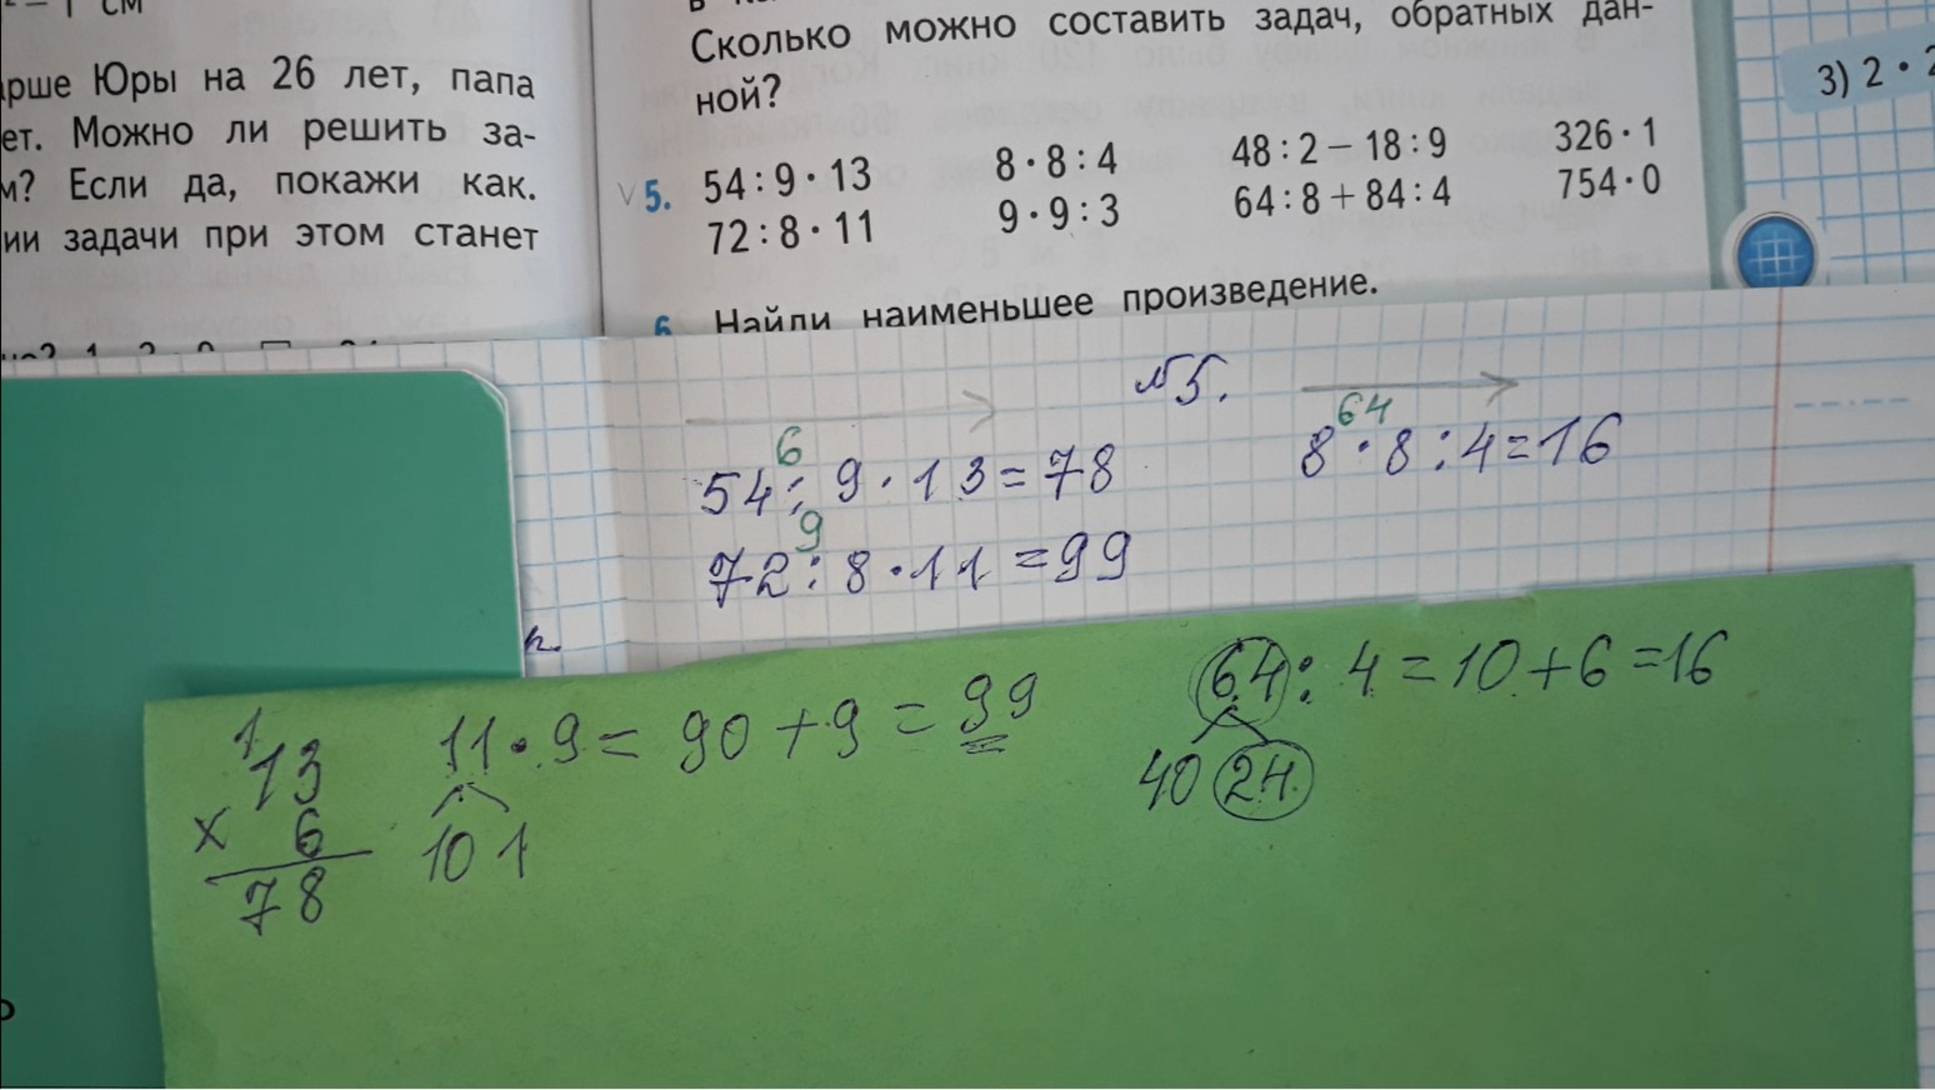 1 см
рше Юры на 26 лет, папа
ет. Можно ли решить за-
м? Если да, покажи как.
ии задачи при этом станет
Сколько можно составить задач, обратных дан-
ной?
5. 54 : 9 · 13 8 · 8 : 4 48 : 2 – 18 : 9 326 · 1
72 : 8 · 11 9 · 9 : 3 64 : 8 + 84 : 4 754 · 0
6 Найди наименьшее произведение.
3) 2 · 2
№5.
6
54 : 9 · 13 = 78
64
8 · 8 : 4 = 16
9
72 : 8 · 11 = 99
1
13
× 6
78
11 · 9 = 90 + 9 = 99
10 1
64 : 4 = 10 + 6 = 16
40 24